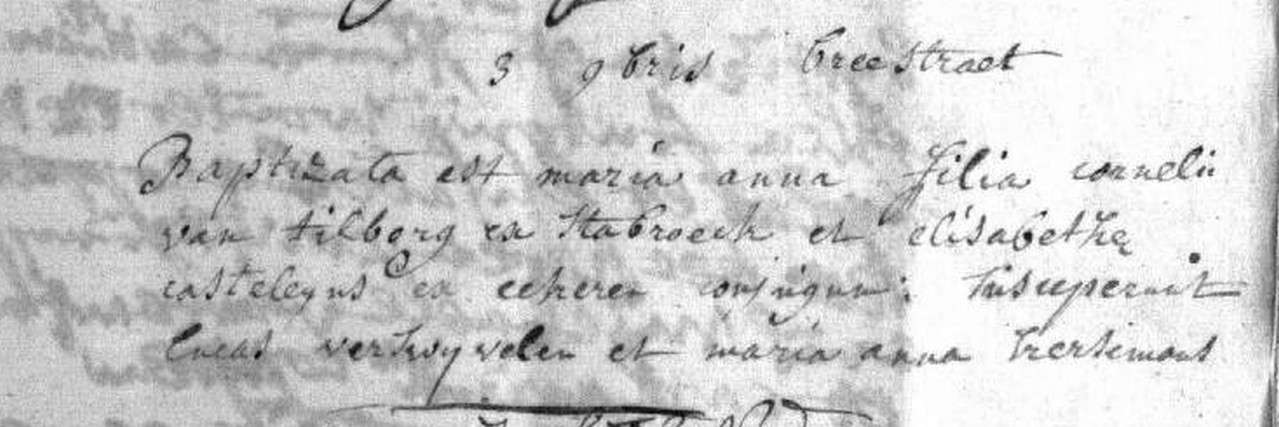 3 9bris breestraet
Baptizata est maria anna filia cornelii
van tilborg ex stabroeck et elisabethæ
casteleyns ex eekeren conjugum: susceperunt
lucas verswyvelen et maria anna